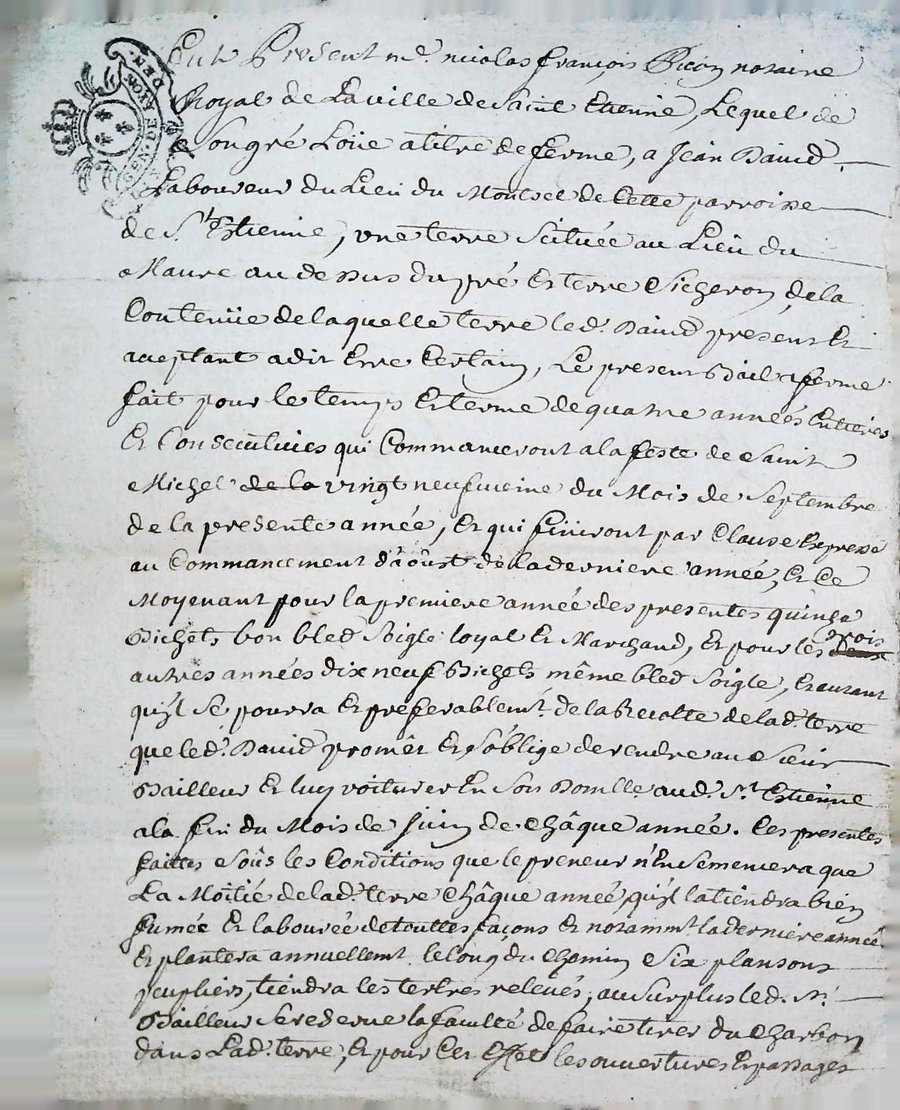 GEN. DE LYON. DEN.
Fut Present me. nicolas françois Picon notaire
Royal de La ville de Saint Etienne, Lequel de
Songré Loüe a titre de ferme, a Jean David
Laboureur du Lieu du Montcel de Cette parroisse
de St. Etienne, une terre Scituée au Lieu du
Maure au dessus du pré Et terre Sicheron, de la
Contenüe de laquelle terre led. David present Et
acceptant a dit Etre Certain, Le present Bail a ferme
fait pour le temps Et terme de quatre années Entieres
Et Consecutives qui Commanceront a la feste de Saint
Michel de la vingt neufvieme du Mois de Septembre
de la presente année, Et qui finiront par Clause Expresse
au Commancement d'aôust de la derniere année, Et Ce
Moyenant pour la premiere année des presentes quinze
Bichets bon bled Soigle loyal Et Marchand, Et pour les trois
autres années dix neuf Bichets même bled Soigle, Et autant
qu'il Se pourra Et preferablemt. de la Recolte de lad. terre
que led. David promêt Et S'oblige de rendre au Sieur
Bailleur Et luy voiturer En Son Domille. aud. St. Etienne
a la fin du Mois de juin de Châque année. Ces presentes
faittes Sous les Conditions que le preneur n'Ensemencera que
La Moitié de lad. terre Châque année, qu'il la tiendra bien
fumée Et labourée de touttes façons Et notammt. la derniere année
Et plantera annuellemt. le long du Chemin Six plansons
peupliers, tiendra les tertres relevés, au Surplus led. Sr.
Bailleur Se reserve la faculté de faire tirer du Charbon
dans Lad. terre, Et pour Cet Effet les ouvertures Et passages